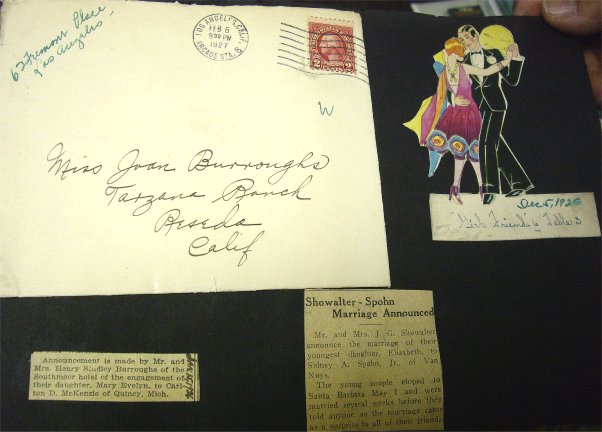 62 Fremont Place
Los Angeles
LOS ANGELES, CALIF.
FEB 6
930 PM
1927
ARCADE STA. B
2 2
W
Miss Joan Burroughs
Tarzana Ranch
Reseda
Calif
Dec 5, 1926
Girl Friend
Announcement is made by Mr. and
Mrs. Henry Studley Burroughs of the
Southmoor hotel of the engagement of
their daughter, Mary Evelyn, to Carl-
ton D. McKenzie of Quincy, Mich.
Showalter - Spohn
Marriage Announced
Mr. and Mrs. J. G. Showalter
announce the marriage of their
youngest daughter, Elizabeth, to
Sidney A. Spohn, Jr., of Van
Nuys.
The young couple eloped to
Santa Barbara May 1 and were
married several weeks before they
told anyone, so the marriage came
as a surprise to all of their friends